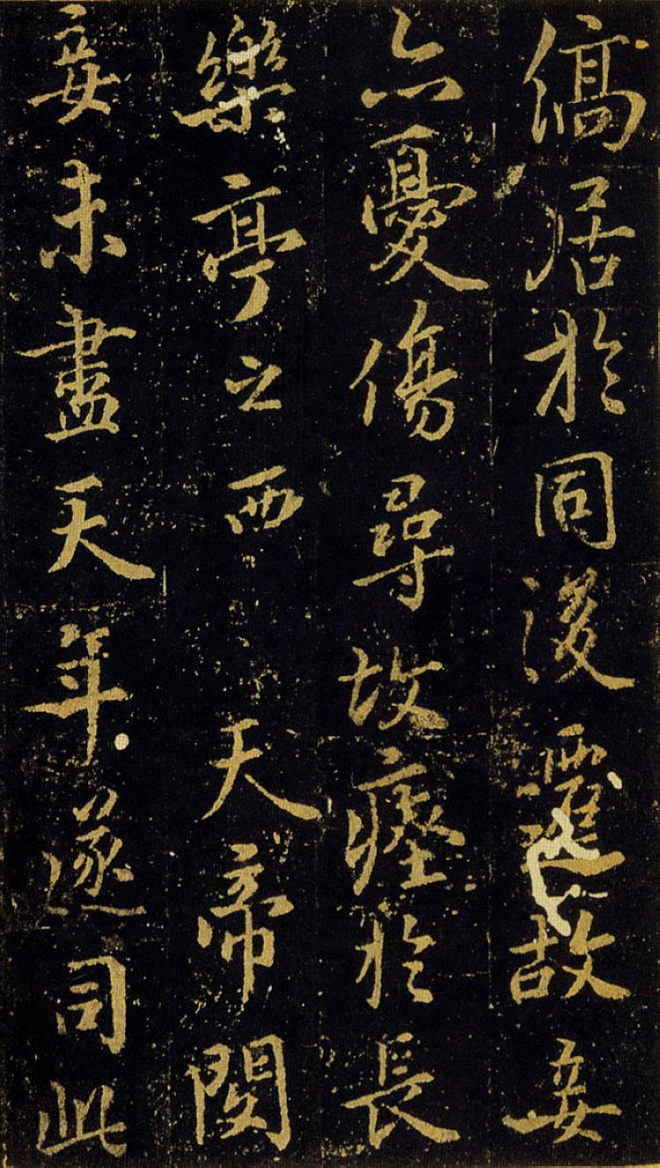 縞居於同後遷故妾
亦憂傷尋故瘞於長
樂亭之西天帝閔
妾未盡天年遂司此